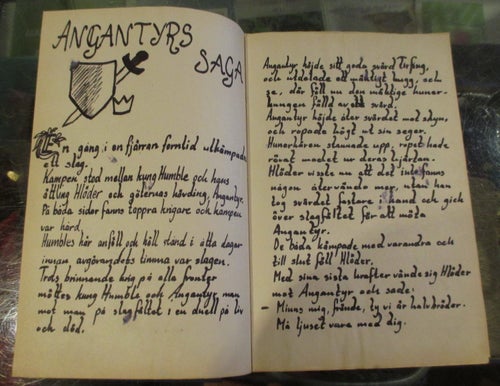 ANGANTYRS
SAGA
En gång i en fjärran forntid utkämpades
ett slag.
Kampen stod mellan kung Humble och hans
ättling Hlöder och göternas hövding, Angantyr.
På båda sidor fanns tappra krigare och kampen
var hård.
Humbles här anföll och höll stånd i åtta dagar
innan avgörandets timma var slagen.
Trots brinnande krig på alla fronter
möttes kung Humble och Angantyr, man
mot man, på slagfältet i en duell på liv
och död.
Angantyr höjde sitt goda svärd Tirfing,
och utdelade ett mäktigt hugg, och
se, där föll nu den mäktige huner-
kungen fälld av ett svärd.
Angantyr höjde åter svärdet mot skyn,
och ropade högt ut sin seger.
Hunerhären stannade upp, ropet hade
rövat modet ur deras hjärtan.
Hlöder visste nu att det inte fanns
någon återvändo mer, utan han
tog svärdet fastare i hand och gick
över slagfältet för att möta
Angantyr.
De båda kämpade med varandra och
till slut föll Hlöder.
Med sina sista krafter vände sig Hlöder
mot Angantyr och sade:
- Minns mig, frände, ty vi är halvbröder.
Må ljuset vare med dig.